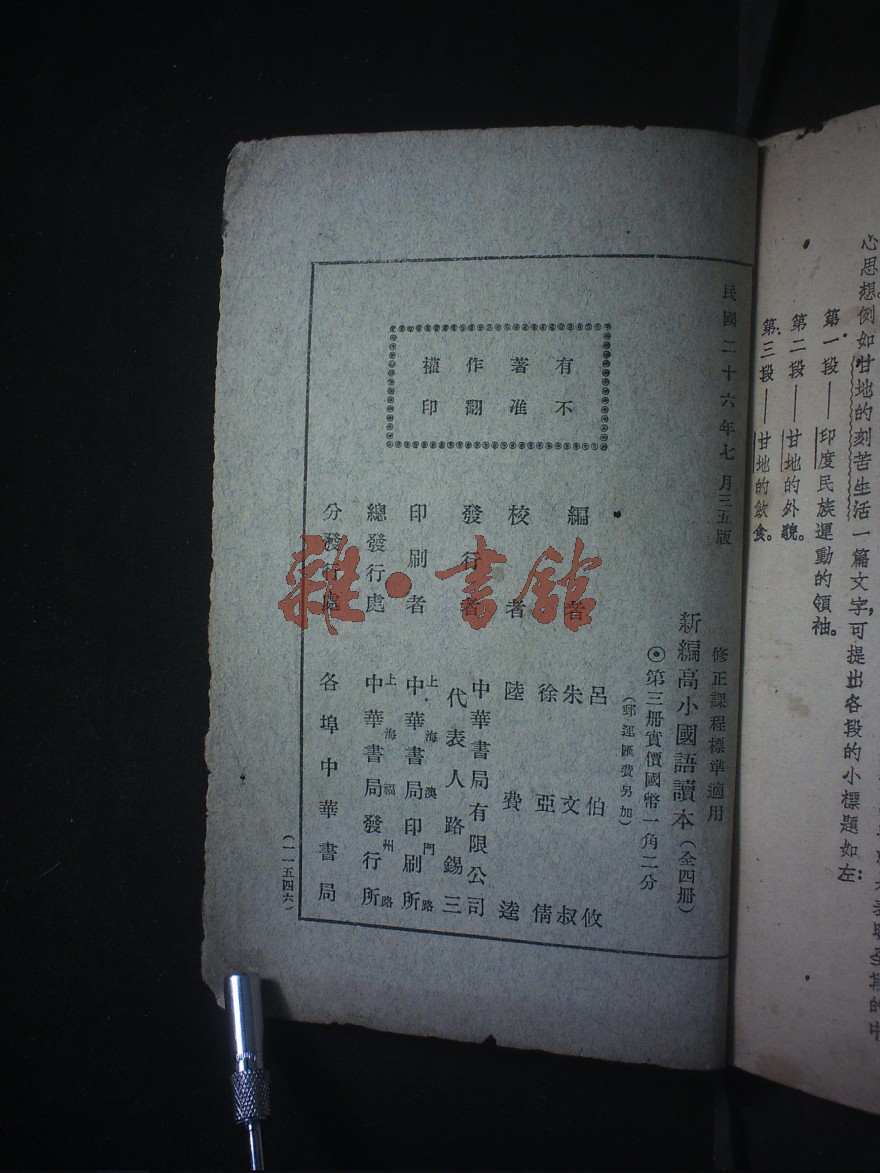 心思想。例如甘地的刻苦生活一篇文字,可提出各段的小標題如左:
第一段——印度民族運動的領袖。
第二段——甘地的外貌。
第三段——甘地的飲食。
民國二十六年七月三五版
修正課程標準適用
新編高小國語讀本(全四册)
◉第三册實價國幣一角二分
(郵運匯費另加)
有不
著准
作翻
權印
編者 呂伯攸
朱文叔
徐亞倩
校者 陸費逵
發行者 中華書局有限公司
代表人路錫三
印刷者 上海澳門路
中華書局印刷所
總發行處 上海福州路
中華書局發行所
分發行處 各埠中華書局
(一一五四六)
雜·書館